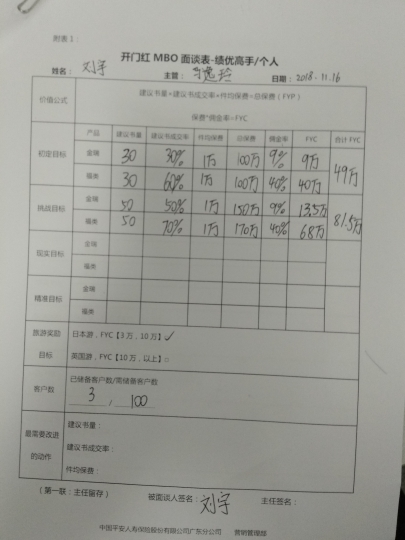 附表1：
开门红 MBO 面谈表-绩优高手/个人
姓名：刘宇 主管： 日期：2018.11.16
价值公式 建议书量*建议书成交率*件均保费=总保费（FYP）
保费*佣金率=FYC
产品 建议书量 建议书成交率 件均保费 总保费 佣金率 FYC 合计 FYC
初定目标 金瑞 30 30% 1万 100万 9% 9万 49万
福类 30 60% 1万 100万 40% 40万
挑战目标 金瑞 50 50% 1万 150万 9% 13.5万 81.5万
福类 50 70% 1万 170万 40% 68万
现实目标 金瑞
福类
精准目标 金瑞
福类
旅游奖励 日本游，FYC【3万，10万】✓
目标 英国游，FYC【10万，以上】□
客户数 已储备客户数/需储备客户数
3 / 100
最需要改进的动作 建议书量：
建议书成交率：
件均保费：
（第一联：主任留存） 被面谈人签名：刘宇 主任签名：
中国平安人寿保险股份有限公司广东分公司 营销管理部